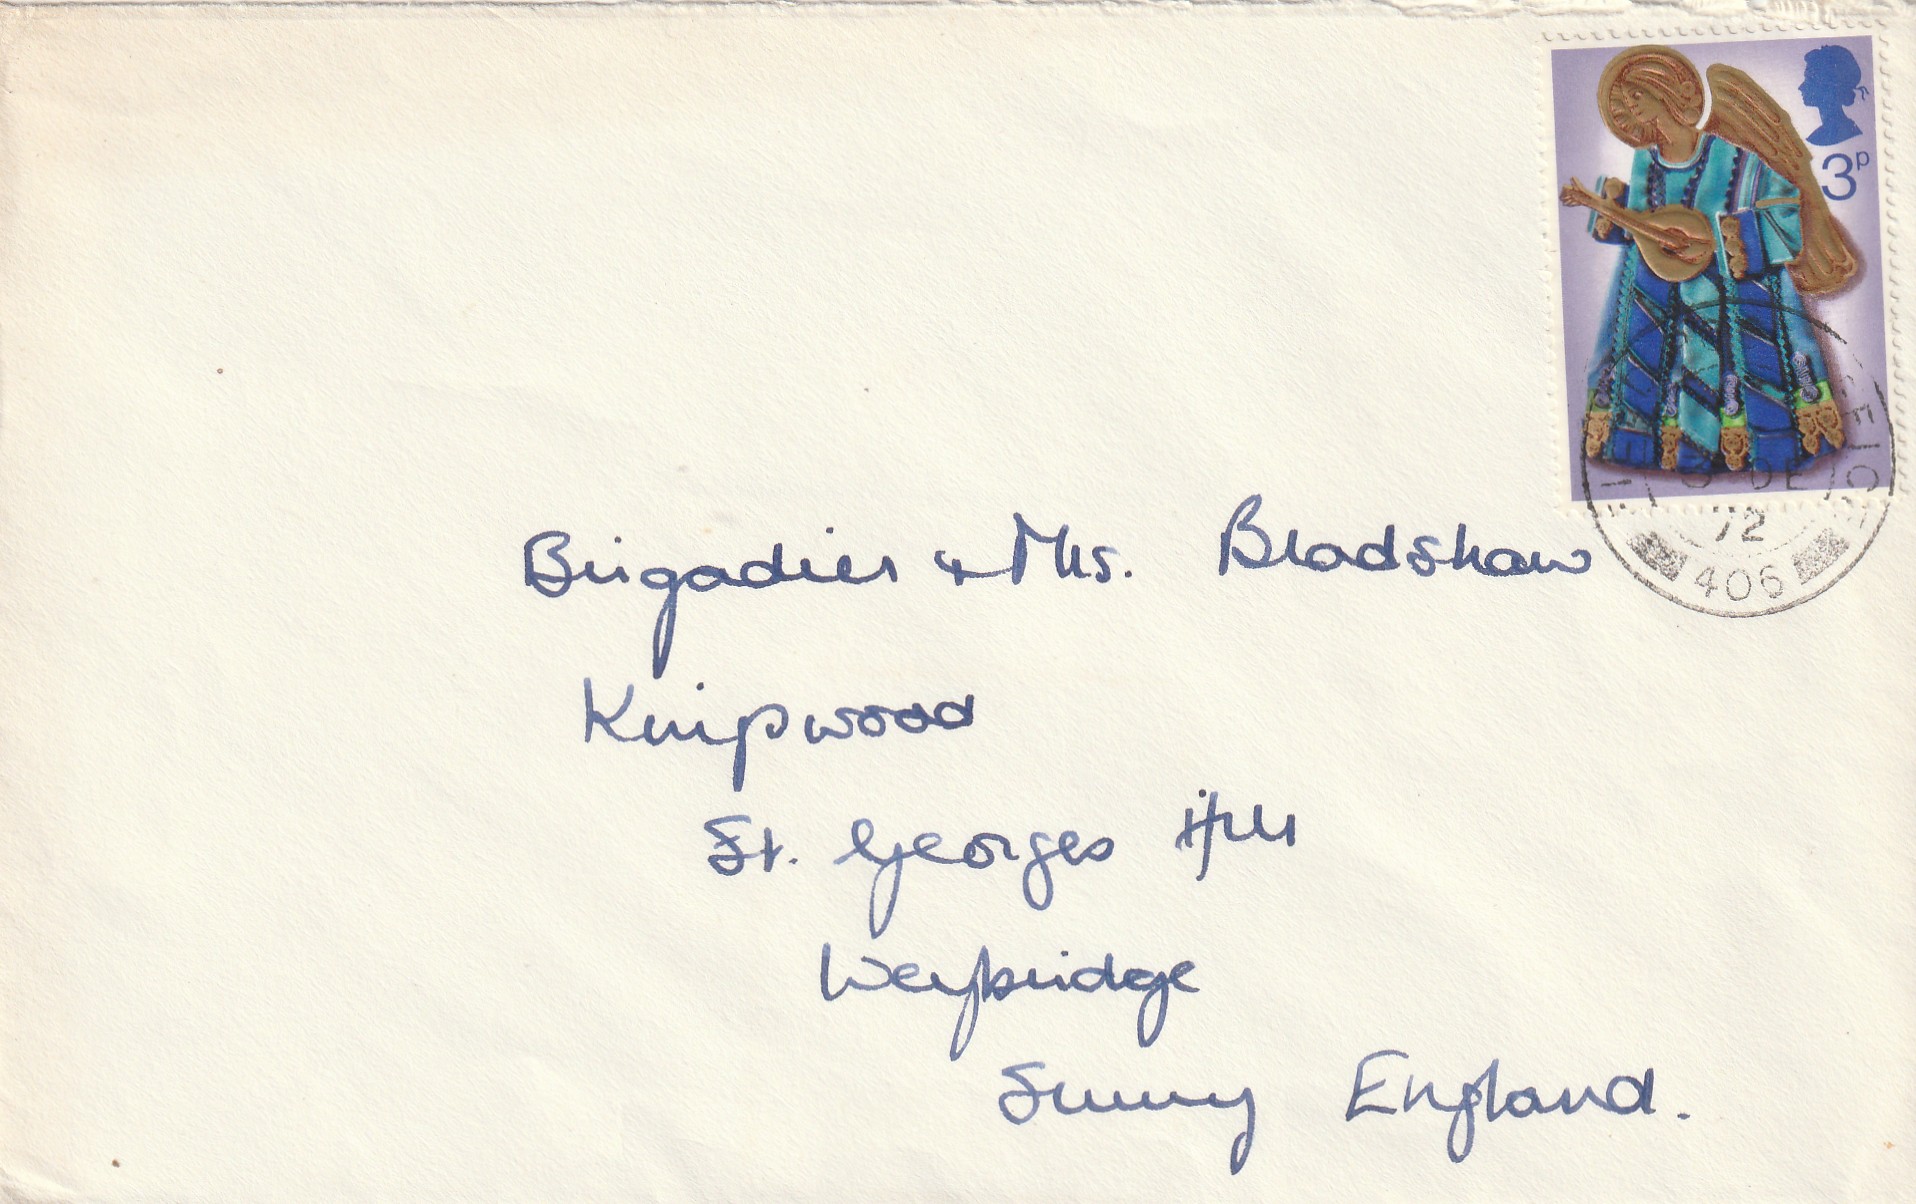 3p
DE
72
406
Brigadier & Mrs. Bradshaw
Knipwood
St. Georges Hill
Weybridge
Surrey England.